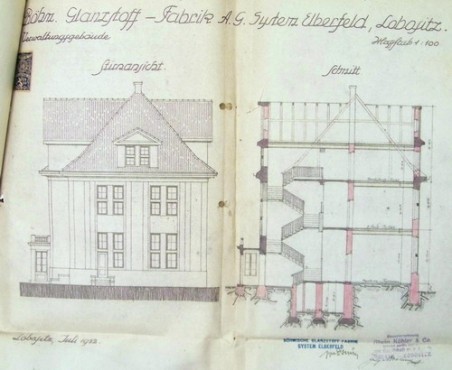 Böhm. Glanzstoff - Fabrik A.G. System Elberfeld, Lobositz.
Verwaltungsgebäude
Maßstab 1:100
Stirnansicht.
Schnitt
Lobositz, Juli 1922.
BÖHMISCHE GLANZSTOFF FABRIK
SYSTEM ELBERFELD
& Co